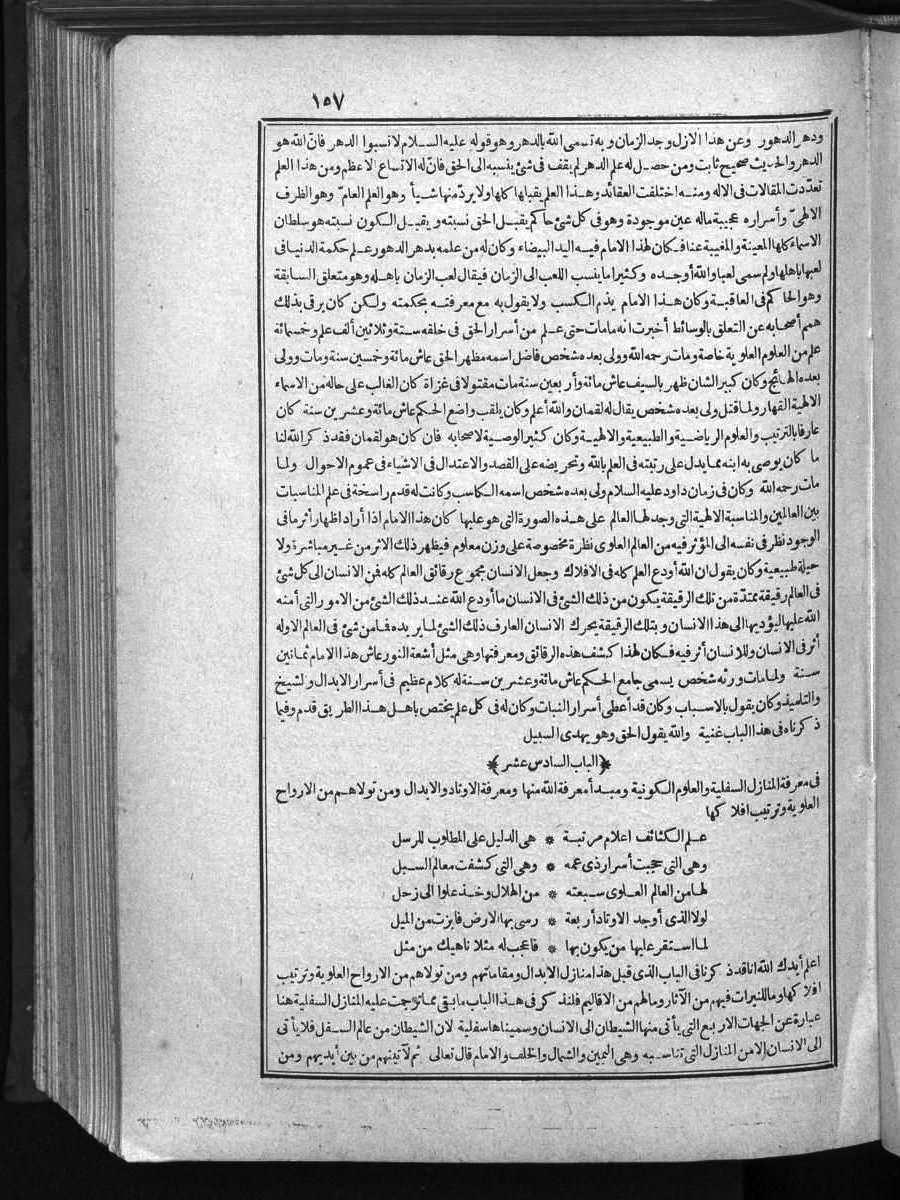 ١٥٧
ودهر الدهور وعن هذا الازل وجد الزمان وبه تسمى الله بالدهر وهو قوله عليه السلام لا تسبوا الدهر فان الله هو
الدهر والحديث صحيح ثابت ومن حصل له علم الدهر لم يقف فى شئ ينسبه الى الحق فان له الاتساع الاعظم ومن هذا العلم
تعددت المقالات فى الاله ومنه اختلفت العقائد وهذا العلم يقبلها كلها ولا يرد منها شيأ وهو العلم العام وهو الظرف
الالهى وأسراره عجيبة ماله عين موجودة وهو فى كل شئ حاكم يقبل الحق نسبته ويقبل الكون نسبته هو سلطان
الاسماء كلها المعينة والمغيبة عنا فكان لهذا الامام فيه اليد البيضاء وكان له من علمه بدهر الدهور علم حكمة الدنيا فى
لعبها باهلها ولم سمى لعبا والله أوجده وكثيرا ما ينسب اللعب الى الزمان فيقال لعب الزمان باهله وهو متعلق السابقة
وهو الحاكم فى العاقبة وكان هذا الامام يذم الكسب ولا يقول به مع معرفته بحكمته ولكن كان يرقى بذلك
همم أصحابه عن التعلق بالوسائط أخبرت انه مامات حتى علم من أسرار الحق فى خلقه ستة وثلاثين ألف علم وخمسمائة
علم من العلوم العلوية خاصة ومات رحمه الله وولى بعده شخص فاضل اسمه مظهر الحق عاش مائة وخمسين سنة ومات وولى
بعده الهائج وكان كبير الشان ظهر بالسيف عاش مائة وأربعين سنة مات مقتولا فى غزاة كان الغالب على حاله من الاسماء
الالهية القهار ولما قتل ولى بعده شخص يقال له لقمان والله أعلم وكان يلقب واضع الحكم عاش مائة وعشرين سنة كان
عارفا بالترتيب والعلوم الرياضية والطبيعية والالهية وكان كثير الوصية لاصحابه فان كان هو لقمان فقد ذكر الله لنا
ما كان يوصى به ابنه مما يدل على رتبته فى العلم بالله وتحريضه على القصد والاعتدال فى الاشياء فى عموم الاحوال ولما
مات رحمه الله وكان فى زمان داود عليه السلام ولى بعده شخص اسمه الكاسب وكانت له قدم راسخة فى علم المناسبات
بين العالمين والمناسبة الالهية التى وجد لها العالم على هذه الصورة التى هو عليها كان هذا الامام اذا أراد اظهار أثر ما فى
الوجود نظر فى نفسه الى المؤثر فيه من العالم العلوى نظرة مخصوصة على وزن معلوم فيظهر ذلك الاثر من غير مباشرة ولا
حيلة طبيعية وكان يقول ان الله أودع العلم كله فى الافلاك وجعل الانسان مجموع رقائق العالم كله فمن الانسان الى كل شئ
فى العالم رقيقة ممتدة من تلك الرقيقة يكون من ذلك الشئ فى الانسان ما أودع الله عند ذلك الشئ من الامور التى أمنه
الله عليها ليؤديها الى هذا الانسان وبتلك الرقيقة يحرك الانسان العارف ذلك الشئ لما يريده فما من شئ فى العالم الا وله
أثر فى الانسان وللانسان أثر فيه فكان لهذا كشف هذه الرقائق ومعرفتها وهى مثل أشعة النور عاش هذا الامام ثمانين
سنة ولما مات ورثه شخص يسمى جامع الحكم عاش مائة وعشرين سنة له كلام عظيم فى أسرار الابدال والشيخ
والتلميذ وكان يقول بالاسباب وكان قد أعطى أسرار النبات وكان له فى كل علم يختص باهل هذا الطريق قدم وفيما
ذكرناه فى هذا الباب غنية والله يقول الحق وهو يهدى السبيل
﴿الباب السادس عشر﴾
فى معرفة المنازل السفلية والعلوم الكونية ومبدأ معرفة الله منها ومعرفة الاوتاد والابدال ومن تولاهم من الارواح
العلوية وترتيب افلاكها
علم الكثائف اعلام مرتبة * هى الدليل على المطلوب للرسل
وهى التى حجبت أسرار ذى عمه * وهى التى كشفت معالم السبل
لها من العالم العلوى سبعته * من الهلال وخذ علوا الى زحل
لولا الذى أوجد الاوتاد أربعة * رسى بها الارض فابزت من الميل
لما استقر عليها من يكون بها * فاعجب له مثلا ناهيك من مثل
اعلم أيدك الله انا قد ذكرنا فى الباب الذى قبل هذا منازل الابدال ومقاماتهم ومن تولاهم من الارواح العلوية وترتيب
افلاكها وما للنيرات فيهم من الآثار وما لهم من الاقاليم فلنذكر فى هذا الباب ما بقى مما ترجمت عليه المنازل السفلية هنا
عبارة عن الجهات الاربع التى يأتى منها الشيطان الى الانسان وسميناها سفلية لان الشيطان من عالم السفل فلا يأتى
الى الانسان الا من المنازل التى تناسبه وهى اليمين والشمال والخلف والامام قال تعالى ثم لآتينهم من بين أيديهم ومن